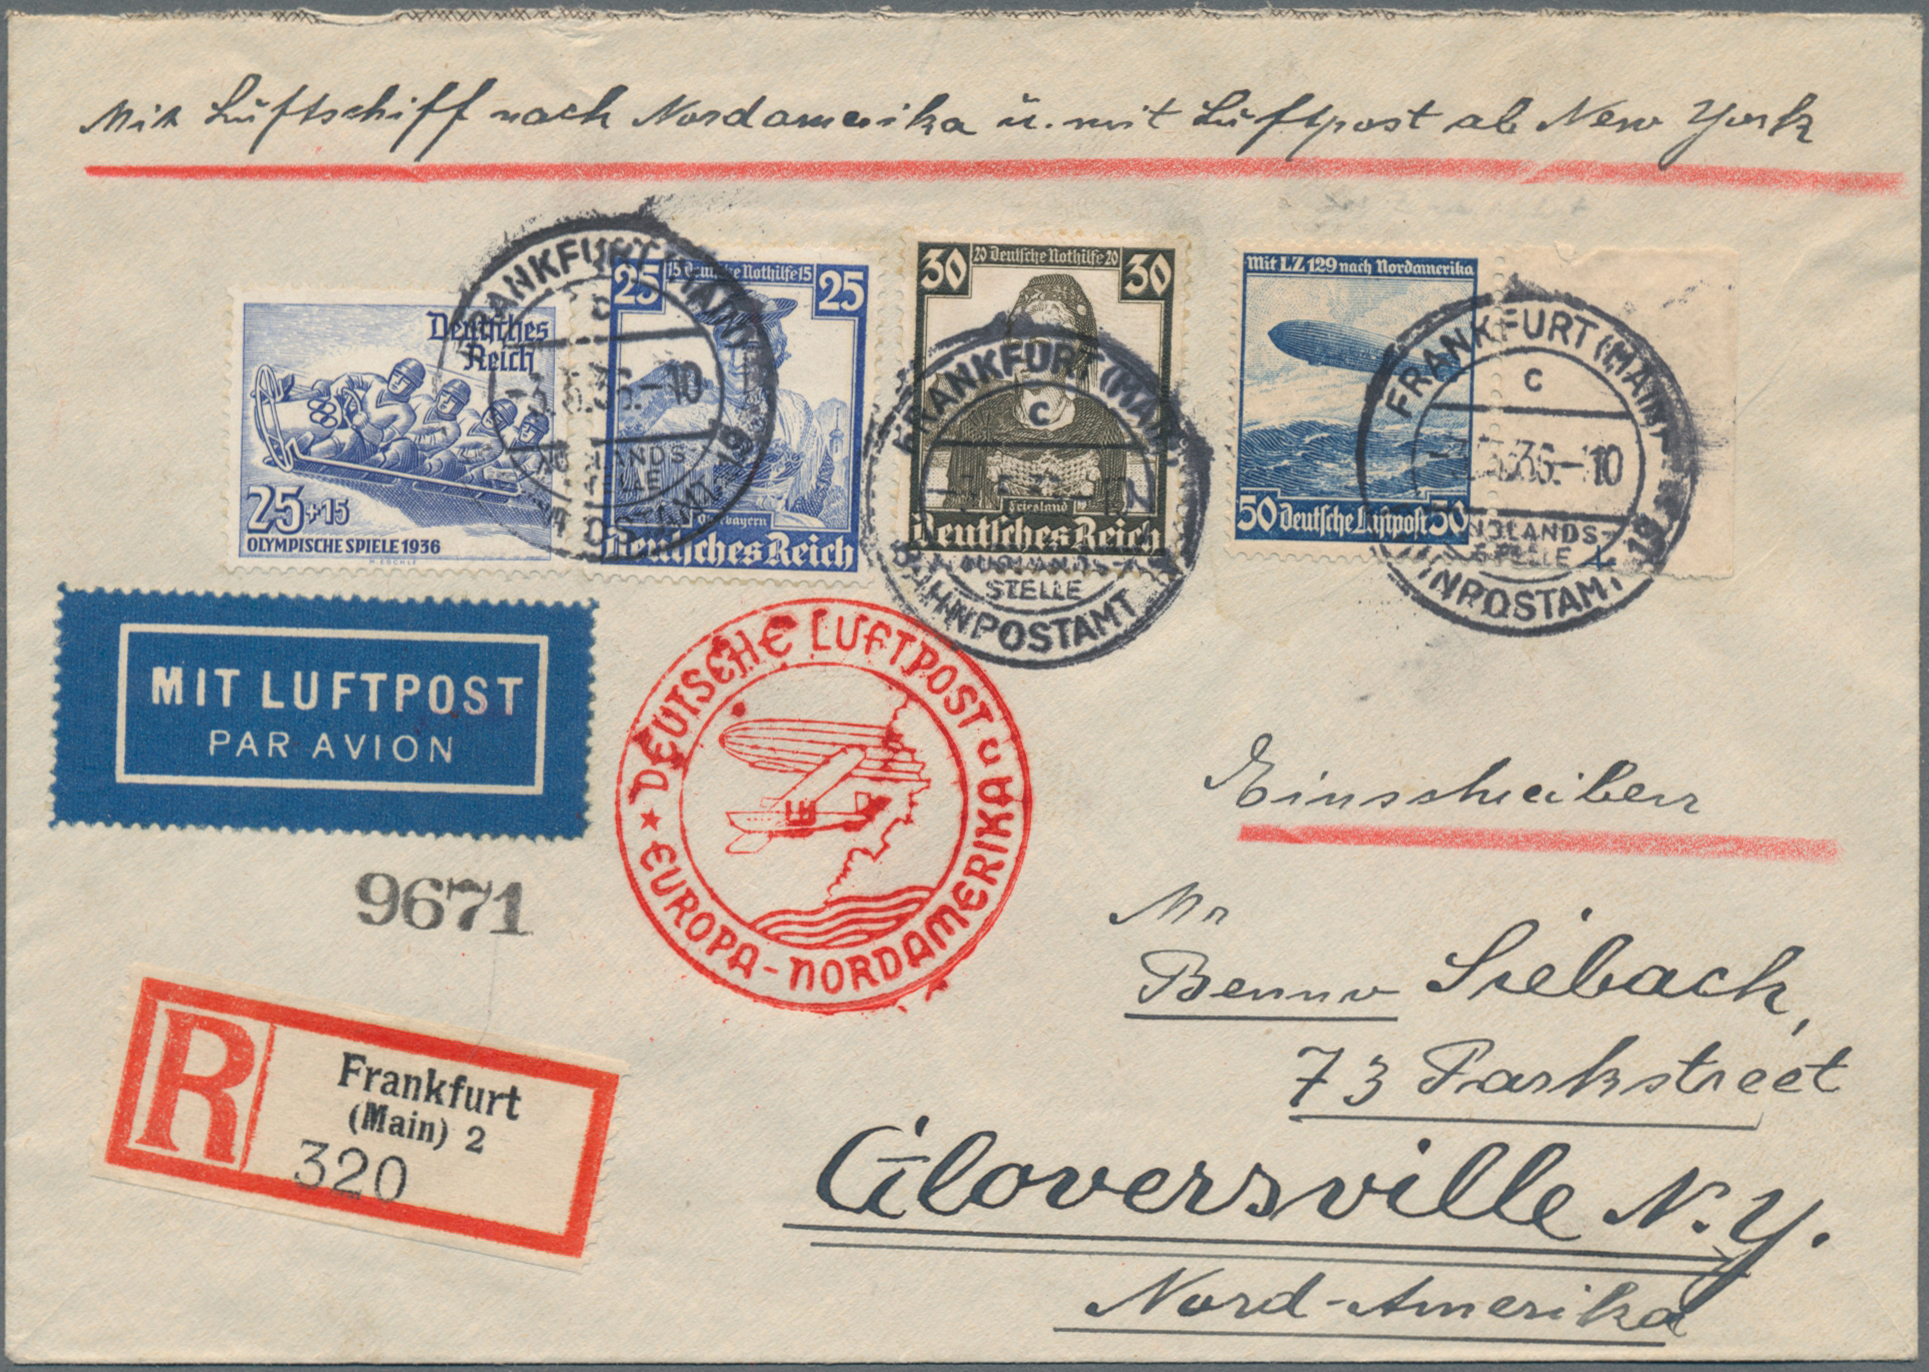 Mit Luftschiff nach Nordamerika u. mit Luftpost ab New York
Deutsches
Reich
25+15
OLYMPISCHE SPIELE 1936
25 15 Deutsche Nothilfe 15 25
Oberbayern
Deutsches Reich
30 20 Deutsche Nothilfe 20 30
Friesland
Deutsches Reich
Mit LZ 129 nach Nordamerika
50 Deutsche Luftpost 50
FRANKFURT (MAIN)
c
36.-10
AUSLANDS-
STELLE
BAHNPOSTAMT 19
FRANKFURT (MAIN)
c
AUSLANDS-
STELLE
BAHNPOSTAMT
FRANKFURT (MAIN)
c
36.-10
AUSLANDS-
STELLE
BAHNPOSTAMT 19
MIT LUFTPOST
PAR AVION
DEUTSCHE LUFTPOST
EUROPA-NORDAMERIKA
9671
Einschreiben
R
Frankfurt
(Main) 2
320
Mr
Benno Siebach,
73 Parkstreet
Gloversville N.Y.
Nord-Amerika